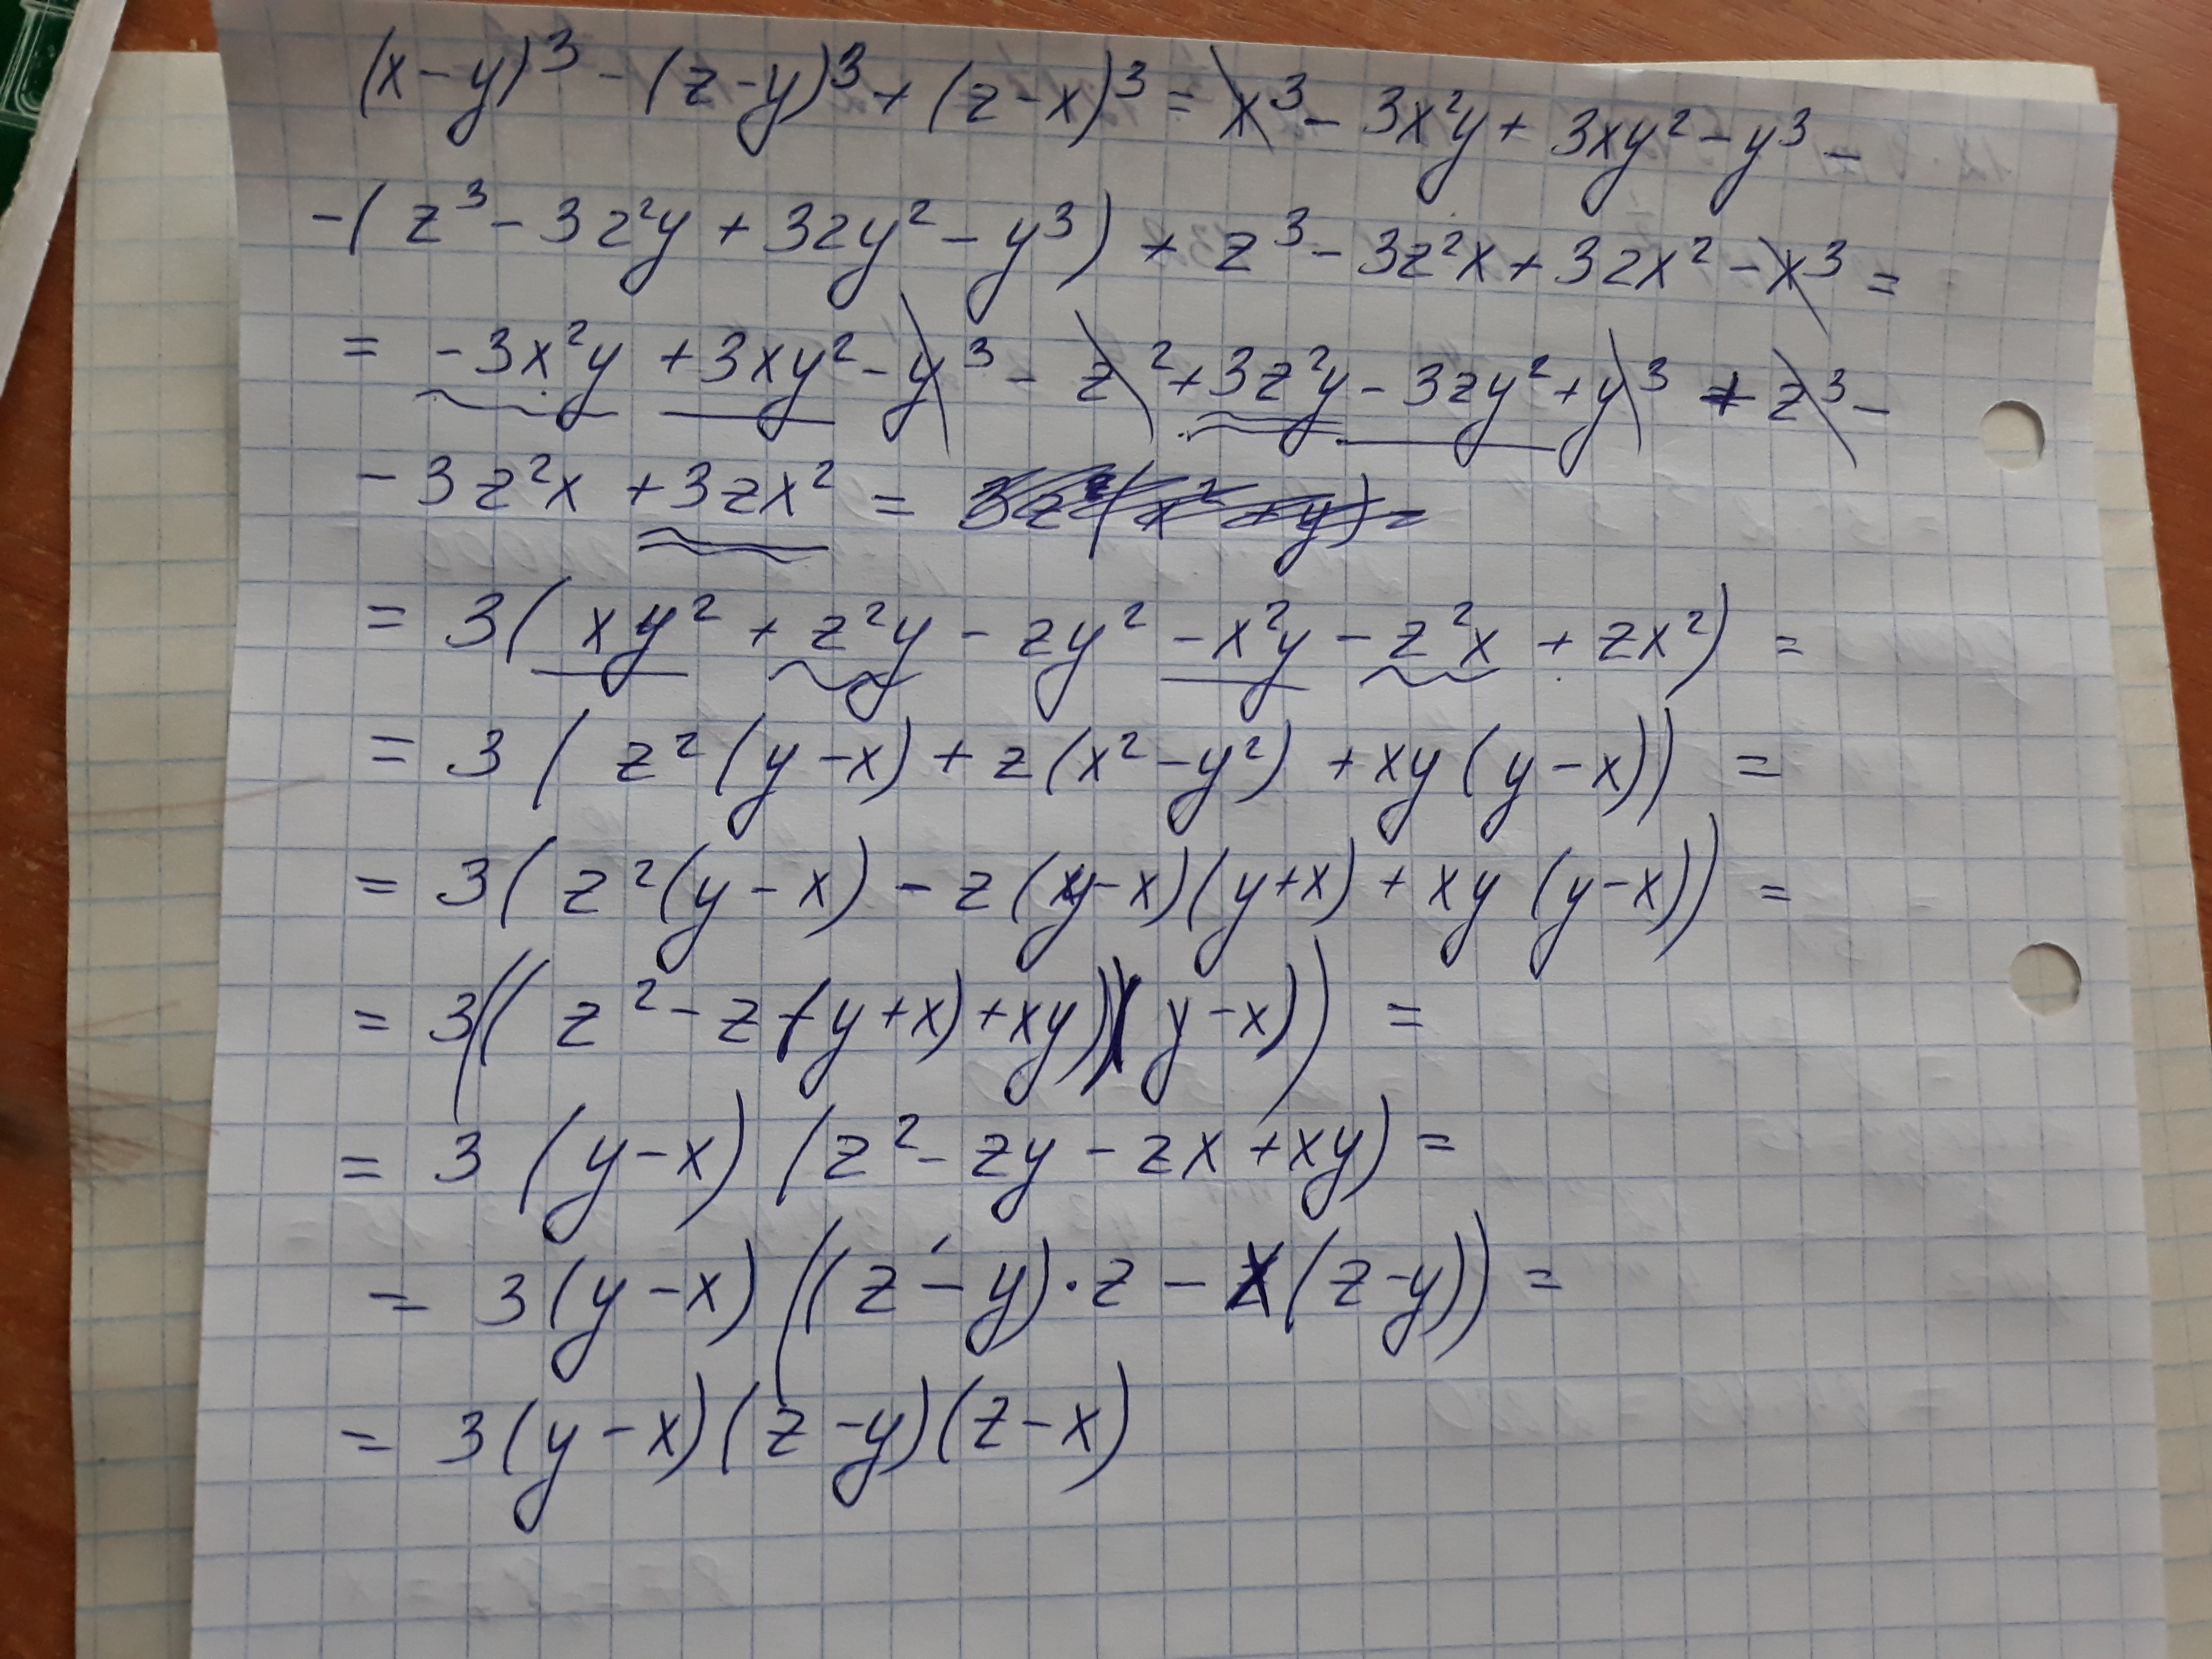 (x-y)³ - (z-y)³ + (z-x)³ = x³ - 3x²y + 3xy² - y³ -
-(z³ - 3z²y + 3zy² - y³) + z³ - 3z²x + 3zx² - x³ =
= -3x²y + 3xy² - y³ - z² + 3z²y - 3zy² + y³ + z³ -
- 3z²x + 3zx² =
= 3(xy² + z²y - zy² - x²y - z²x + zx²) =
= 3(z²(y-x) + z(x²-y²) + xy(y-x)) =
= 3(z²(y-x) - z(y-x)(y+x) + xy(y-x)) =
= 3((z² - z(y+x) + xy)(y-x)) =
= 3(y-x)(z² - zy - zx + xy) =
= 3(y-x)((z-y)·z - x(z-y)) =
= 3(y-x)(z-y)(z-x)